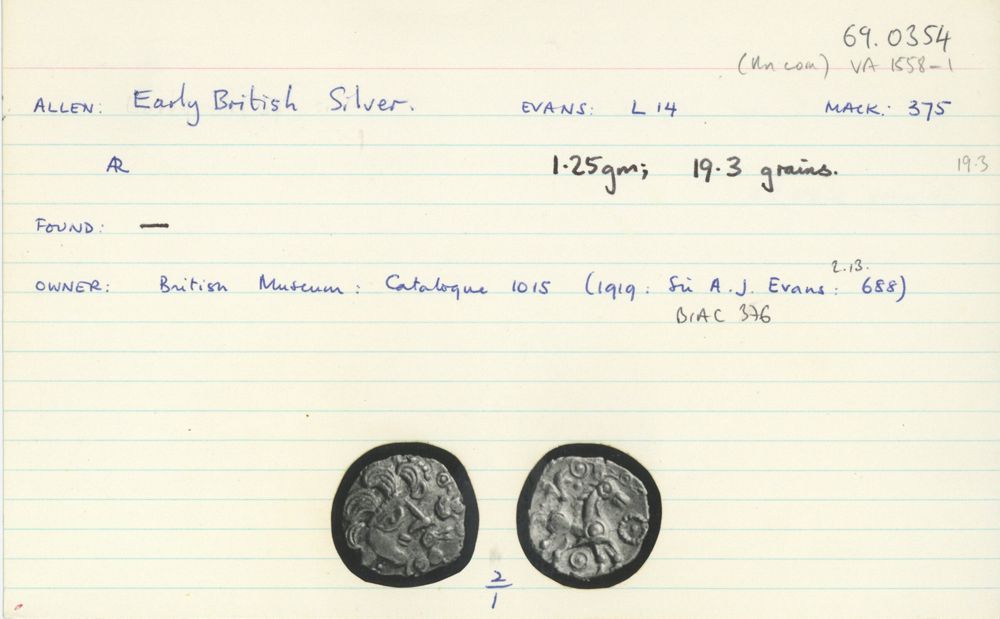 69.0354
VA 1558-1
ALLEN: Early British Silver. EVANS: L 14 MACK: 375
AR 1.25gm; 19.3 grains. 19.3
FOUND: —
2.13.
OWNER: British Museum: Catalogue 1015 (1919: Sir A. J. Evans: 688)
BMC 376
2
1